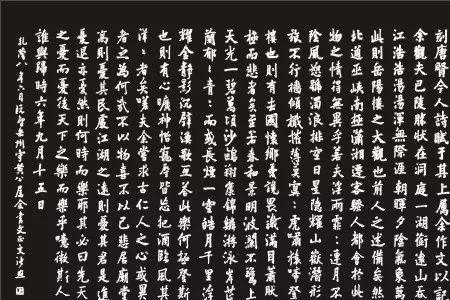 刻唐賢今人詩賦于其上屬余作文以記
余觀夫巴陵勝狀在洞庭一湖銜遠山吞
江浩浩湯湯渾無際涯朝暉夕陰氣象萬
此則岳陽樓之大觀也前人之述備矣然
北通巫峽南極瀟湘遷客騷人都會於此
物之情得無異乎若夫淫雨霏々連月不
陰風怒號濁浪排空日星隱耀山嶽潛形
旅不行檣傾楫摧薄暮冥々虎嘯猿啼登
樓也則有去國懷鄉憂讒畏譏滿目蕭然
極而悲者矣至若春和景明波瀾不驚上
天光一碧萬頃沙鷗翔集錦鱗游泳岸芷
蘭郁々青々而或長煙一空皓月千里浮
耀金靜影沉璧漁歌互荅此樂何極登斯
也則有心曠神怡寵辱皆忘把酒臨風其
洋々者矣嗟夫余嘗求古仁人之心或異
者之為何哉不以物喜不以己悲居廟堂
高則憂其民處江湖之遠則憂其君是進
憂退亦憂然則何時而樂耶其必曰先天
之憂而憂後天下之樂而樂乎噫微斯人
誰與歸時六年九月十五日